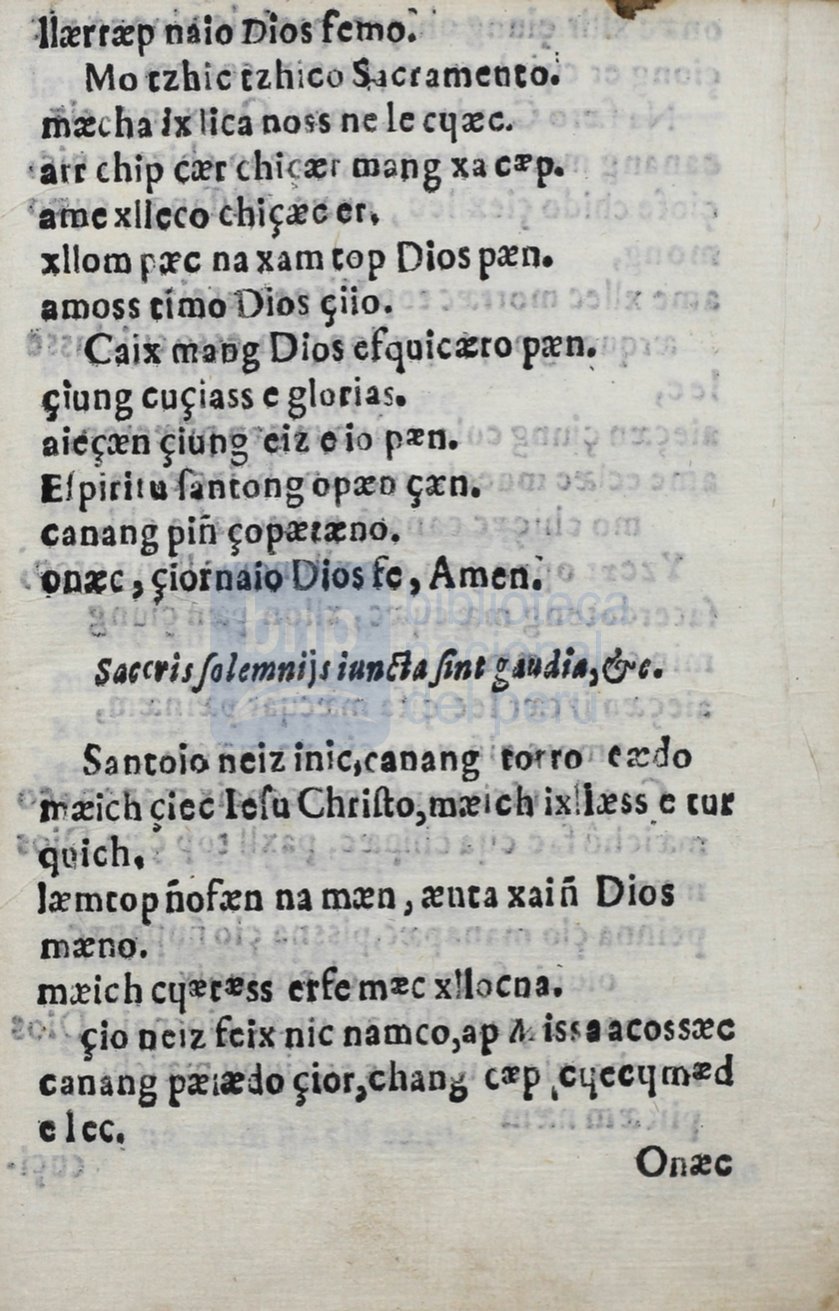 llærræp naio Dios femo.
Mo tzhic tzhico Sacramento.
mæcha ix llca noss ne le cqæc.
arr chip cær chiçær mang xa cæp.
ame xlleco chiçæc er.
xllom pæc na xam top Dios pæn.
amoss timo Dios çiio.
Caix mang Dios efquicæro pæn.
çiung cuçiass e glorias.
aieçæn çiung eiz e io pæn.
Eſpiritu ſantong opæn çæn.
canang piñ çopætæno.
onæc, çiornaio Dios fe, Amen.
Saccris ſolemnijs iuncta ſint gaudia, &c.
Santoio neiz inic, canang torro eædo
mæich çiec Ieſu Chriſto, mæich ixllæss e tur
quich.
læmtop ñofæn na mæn, ænta xaiñ Dios
mæno.
mæich cqætæss erfe mæc xllocna.
çio neiz feix nic namco, ap Missa acossæc
canang pæiædo çior, chang cæp cqecqmæd
e lec.
Onæc